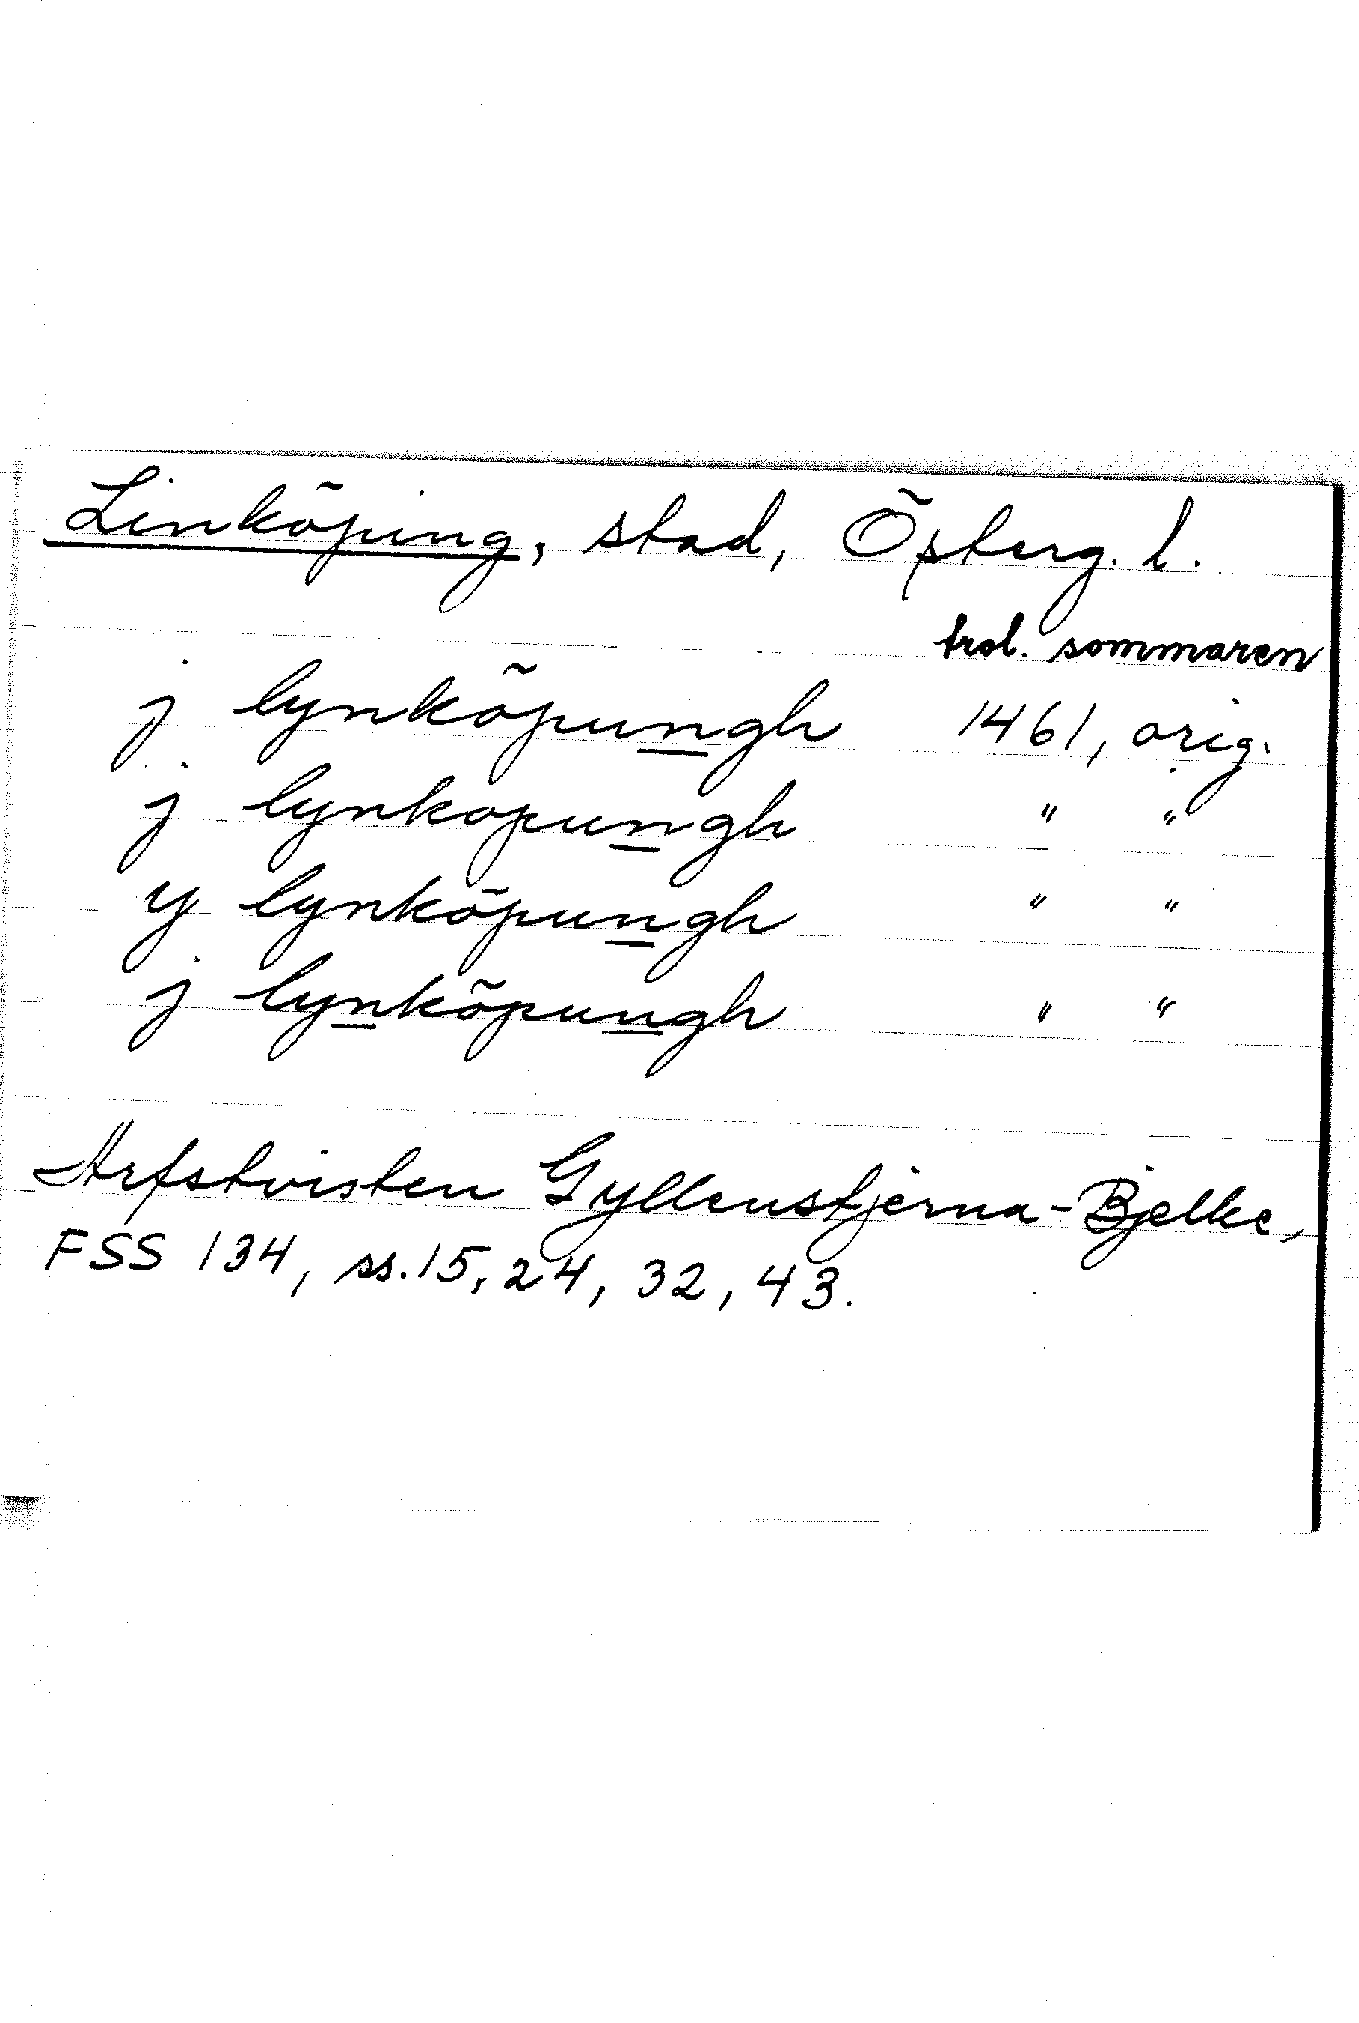 Linköping, stad, Österg. l.
trol. sommaren
j lynköpungh 1461, orig.
j lynkopungh " "
y lynköpungh " "
j lynköpungh " "
Arfstvisten Gyllenstjerna-Bjelke,
FSS 134, ss. 15, 24, 32, 43.